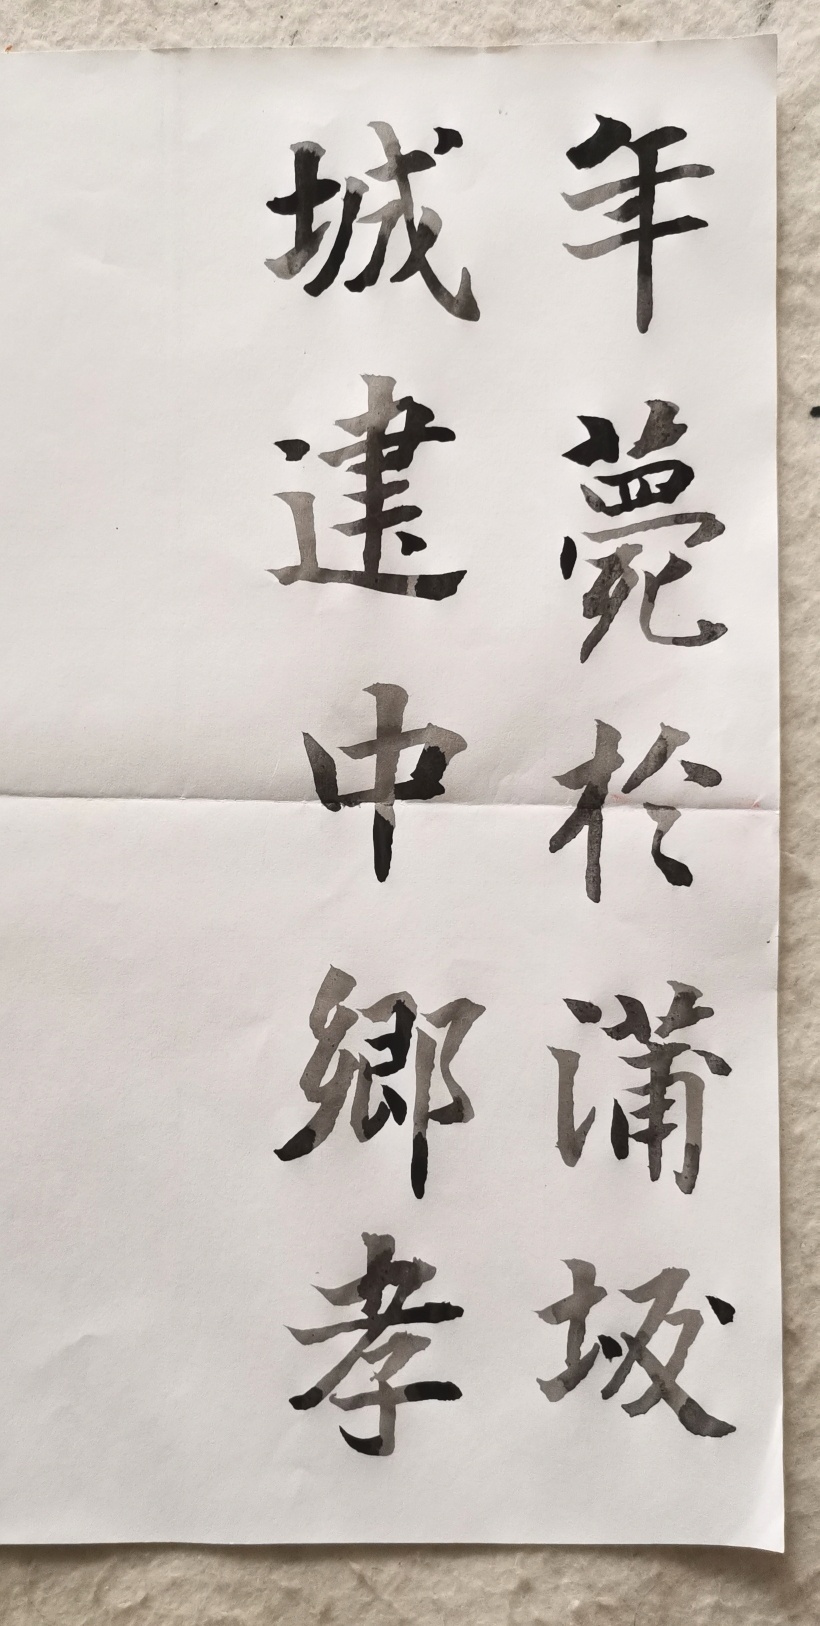 年薨於蒲坂
城建中鄉孝